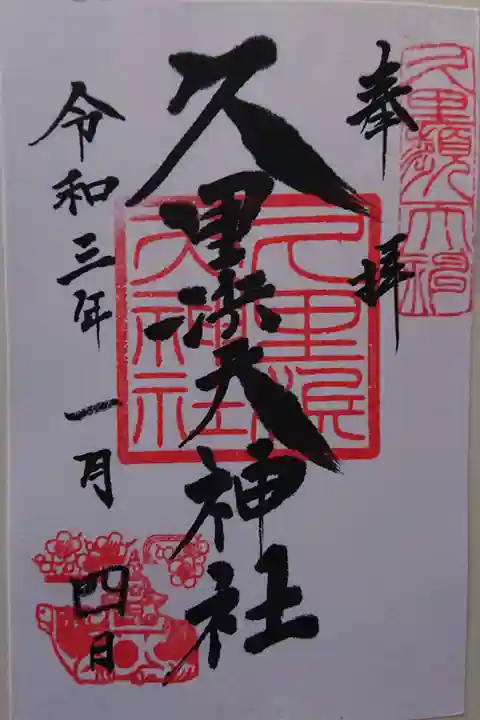 奉拝
久里浜天神社
令和三年 一月 四日
久里浜
天神社